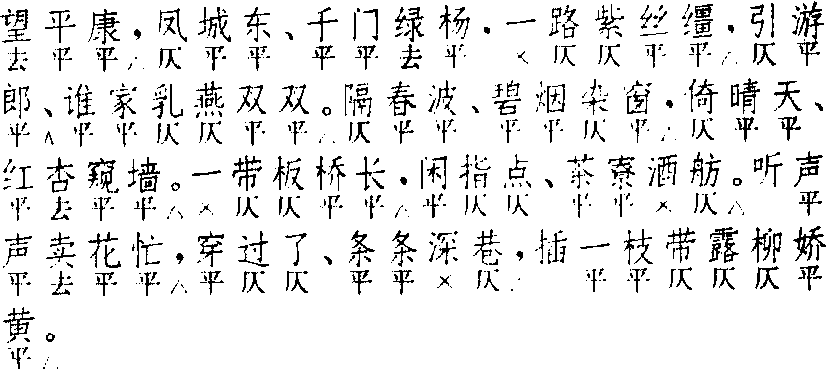 望平康，凤城东、千门绿杨．一路紫丝缰，引游
去平平△仄平平平平去平×仄仄平平△仄平
郎、谁家乳燕双双。隔春波、碧烟染窗，倚晴天、
平△平平仄仄平平△仄平平仄平仄平△仄平平
红杏窥墙。一带板桥长，闲指点、茶寮酒舫。听声
平去平平△×仄仄平平△平仄仄平平×仄△平
声卖花忙，穿过了、条条深巷，插一枝带露柳娇
平去平平△平仄仄平平×仄△平平仄仄仄平
黄。
平△